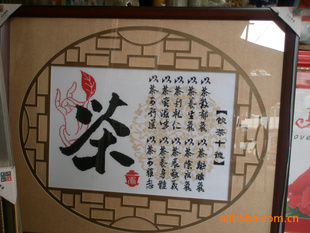 【飲茶十德】
以茶散郁氣 以茶驅睡氣
以茶養生氣 以茶除病氣
以茶利礼仁 以茶表敬意
以茶嘗滋味 以茶養身體
以茶可行道 以茶可雅志
茶